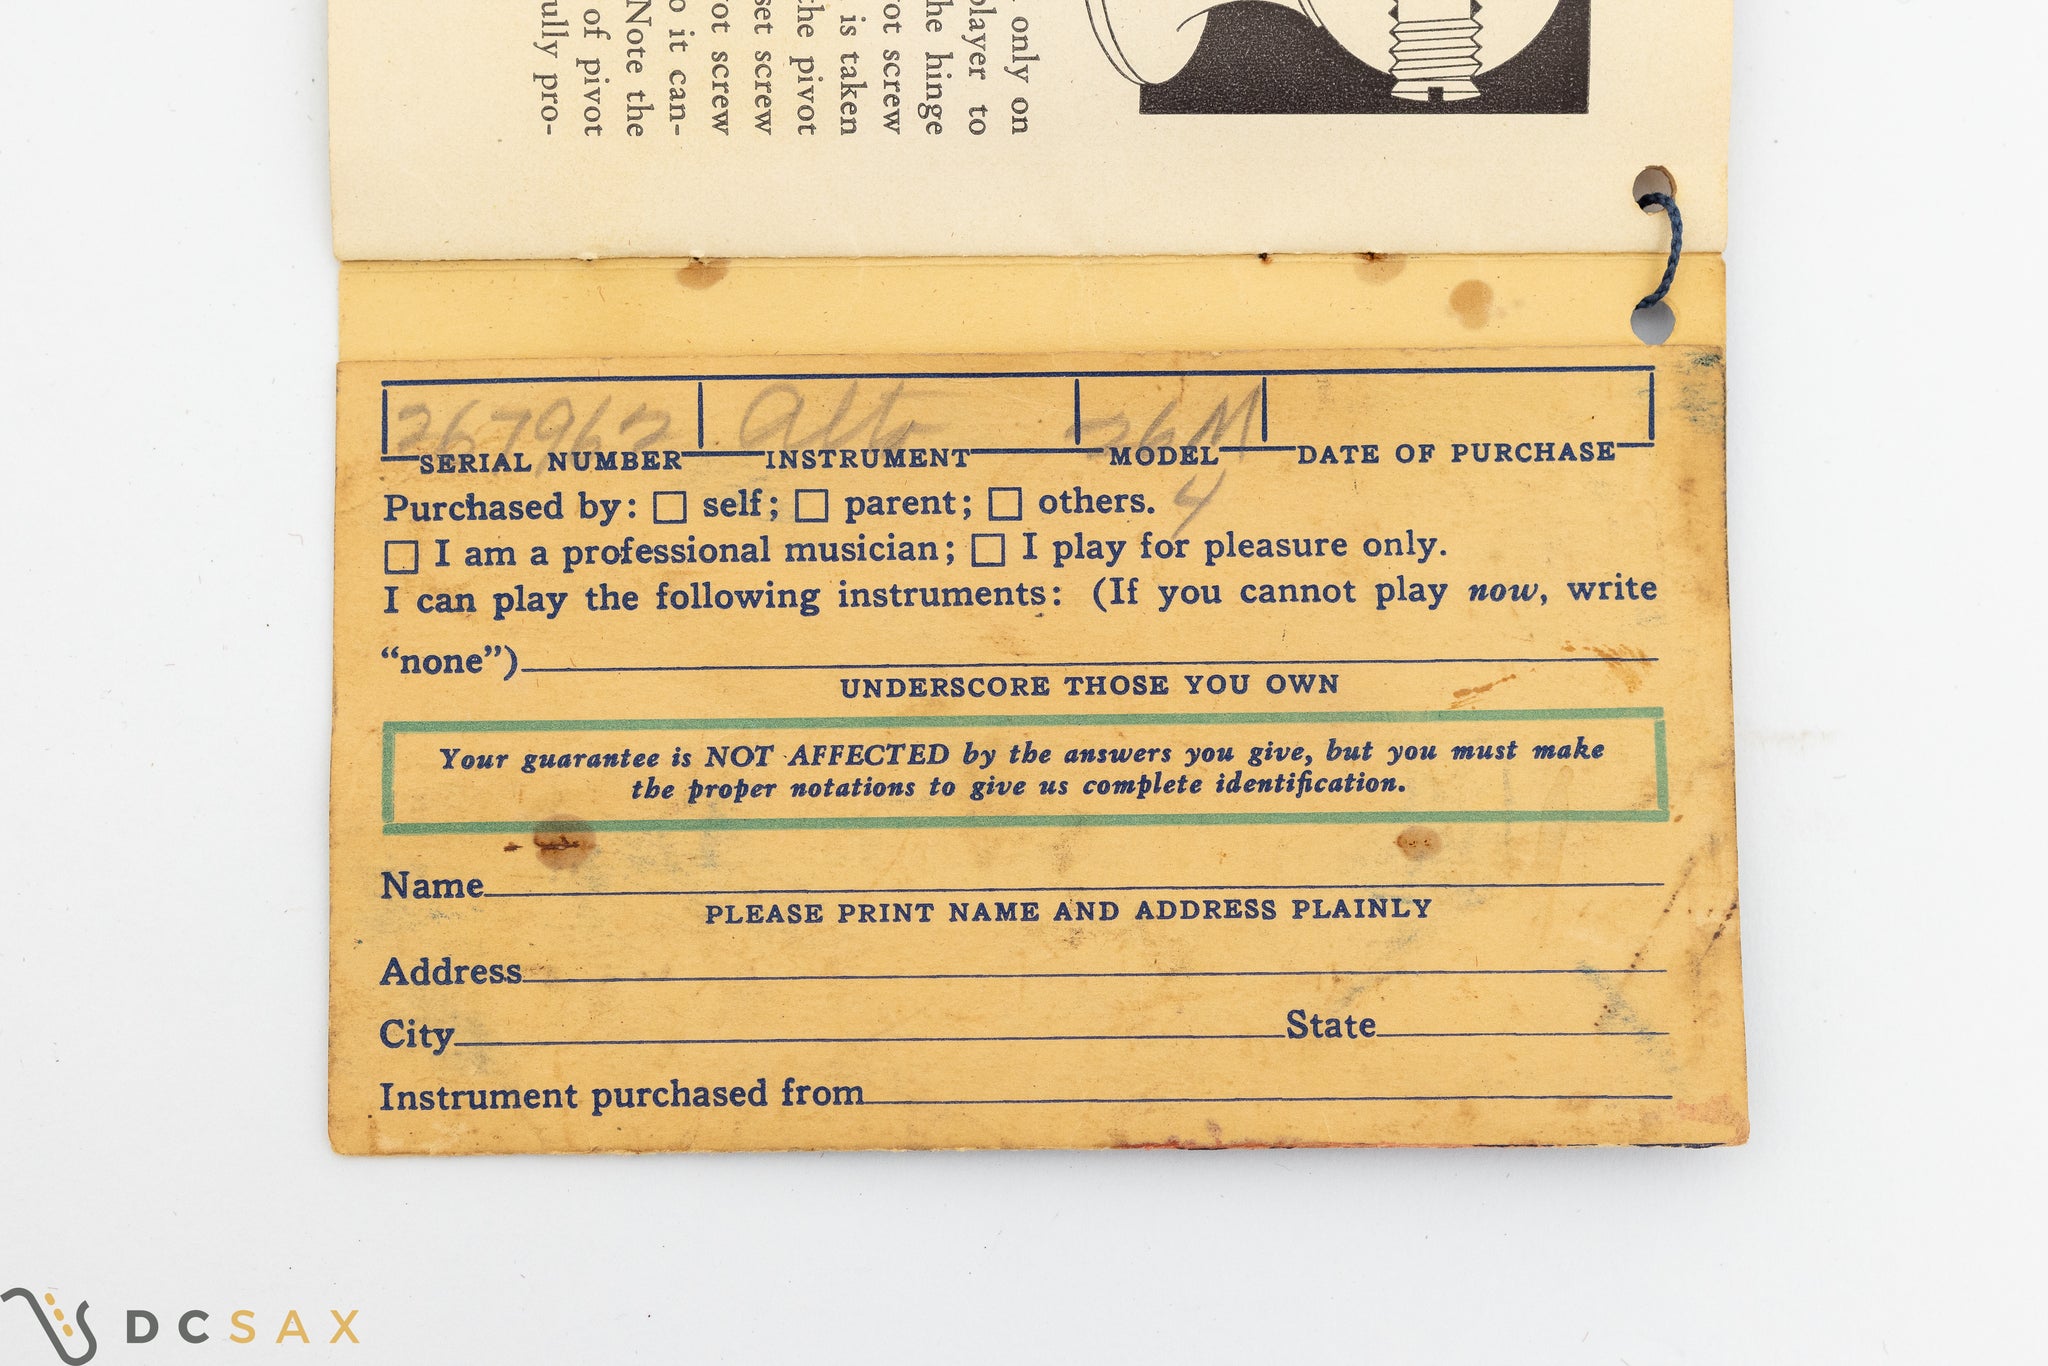 only on
player to
the hinge
pivot screw
is taken
the pivot
set screw
pivot screw
so it can-
Note the
of pivot
fully pro-
267962 Alto 26M
SERIAL NUMBER INSTRUMENT MODEL DATE OF PURCHASE
4
Purchased by: ☐ self; ☐ parent; ☐ others.
☐ I am a professional musician; ☐ I play for pleasure only.
I can play the following instruments: (If you cannot play now, write
“none”)
UNDERSCORE THOSE YOU OWN
Your guarantee is NOT AFFECTED by the answers you give, but you must make
the proper notations to give us complete identification.
Name
PLEASE PRINT NAME AND ADDRESS PLAINLY
Address
City State
Instrument purchased from
DCSAX